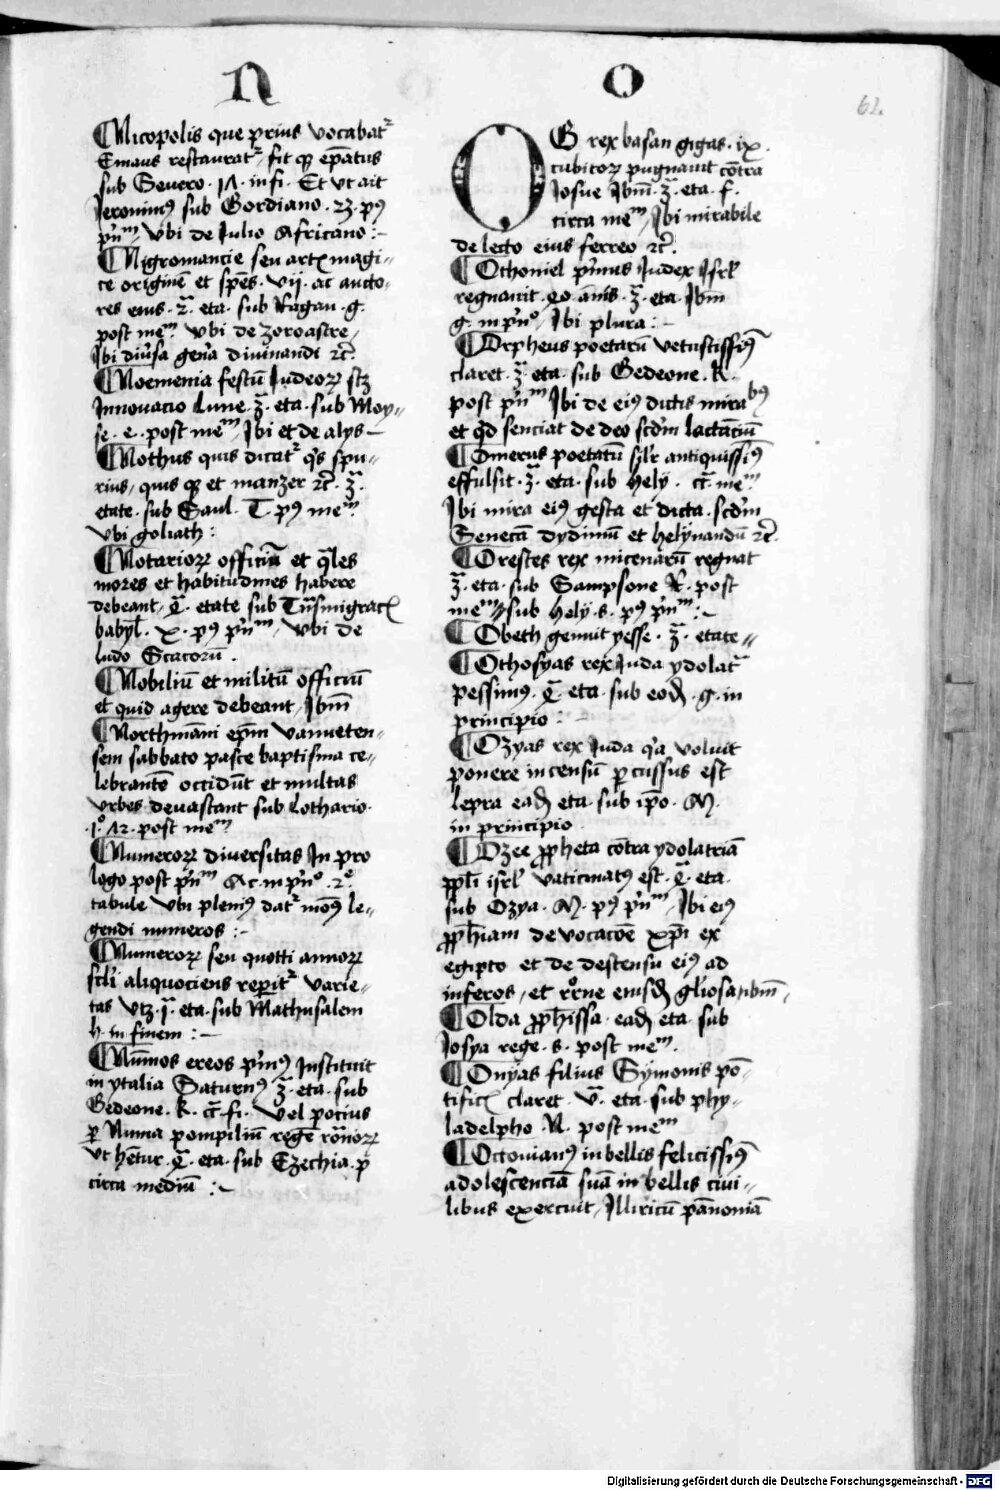 N
O
62.
¶Nicopolis que prius vocabatr
Emaus restauratr, fit qz epātus
sub Severo · 17 · in fi · Et vt ait
Jeronimꝰ sub Gordiano · 23 · pꝰ
pn̄m, vbi de Julio Africano :-
¶Nigromancie seu artꝭ magi-
ce originē et spēs · vij · ac aucto-
res eius · 2ª · eta · sub Ragau · g ·
post mem · vbi de Zoroastre,
Ibi diūsa gen̄a divinandi ꝛc̄.
¶Noemenia festū Iudeoꝝ scꝫ
Innouacio Lune · 3ª · eta · sub Moy-
se · e · post mem, Ibi et de alys -
¶Nothus quis dicatr qͥs spu-
rius, quis qz et manzer ꝛc̄ · 3ª ·
etate · sub Saul · T · pꝰ mem
vbi goliath :
¶Notarioꝝ officiū et q̄les
mores et habitudines habere
debeant, q̄ · etate sub Tn̄smigracꝭ
babyl · x · pꝰ pn̄m, vbi de
ludo Scacorū ·
¶Nobiliū et militū officiū
et quid agere debeant, Ibm̄
¶Northmāni epm̄ vanneten-
sem sabbato pasce baptisma ce-
lebrantē occidūt et multas
vrbes devastant sub Lothario ·
·1º · 12 · post mem
¶Numeroꝝ diversitas In pro
logo post pn̄m Ac in pn̄º · 2e
tabule vbi pleniꝰ datr modꝰ le-
gendi numeros :-
¶Numeroꝝ seu quotti annoꝝ
scl̄i aliquociens reperitr varie-
tas vtz · 1ª · eta · sub Mathusalem
h · in finem :-
¶Nūmos ereos pn̄us Instituit
in ytalia Saturnꝰ 3ª · eta · sub
Gedeone · k · cr̄ · fi · vel pocius
ꝑ Numa pompiliū regē roānoꝝ
vt hētur · q̄ · eta · sub Ezechia · p
circa mediū :-
OG rex basan gigas · ix ·
cubitoꝝ pugnauit cōtra
Iosue Ibm̄ · 3ª · eta · f ·
circa mem, Ibi mirabile
de lecto eius ferreo ꝛc̄.
¶Othoniel pn̄us Iudex Isrl
regnauit · 40 · annis · 3ª · eta · Ibm̄
g · in pn̄º, Ibi plura :-
¶Orpheus poetarū vetustissiꝰ
claret · 3ª · eta · sub Gedeone · k ·
post pn̄m Ibi de eiꝰ dictis mirabꝰ
et qd senciat de deo scdm lactāciū
¶Omerus poetarū silr antiquissiꝰ
effulsit · 3ª · eta · sub hely · cr̄ · mem
Ibi mira eiꝰ gesta et dicta · scdm
Senecā dydimū et helynandū ꝛc̄
¶Orestes rex micenarū regnat
3ª · eta · sub Sampsone R · post
mem, sub hely · s · pꝰ pn̄m :-
¶Obeth genuit yesse · 3ª · etate ·
¶Othosyas rex Iuda ydolatra
pessimꝰ · q̄ · eta · sub eodē · g · in
principio :
¶Ozyas rex Iuda qa voluit
ponere incensū ꝑcussus est
lepra eadē eta · sub ipo · M ·
in principio
¶Ozee ppheta cōtra ydolatriā
ppli isrl vaticinatꝰ est · q̄ · eta ·
sub Ozya · M · pꝰ pn̄m, Ibi eiꝰ
pphiam de vocacōe xpi ex
egipto et de descensu eiꝰ ad
inferos, et rrōne eiusdē gl̄iosa, ibm̄,
¶Olda pphissa · eadē eta · sub
Iosya rege · s · post mem ·
¶Onyas filius Symonis pō-
tificꝭ claret · v̄ · eta · sub phy-
ladelpho · R · post mem
¶Octouianꝰ in bellis felicissiꝰ
adolescenciā suā in bellis ciui-
libus exercuit, Illiricū pānoniā
Digitalisierung gefördert durch die Deutsche Forschungsgemeinschaft - DFG